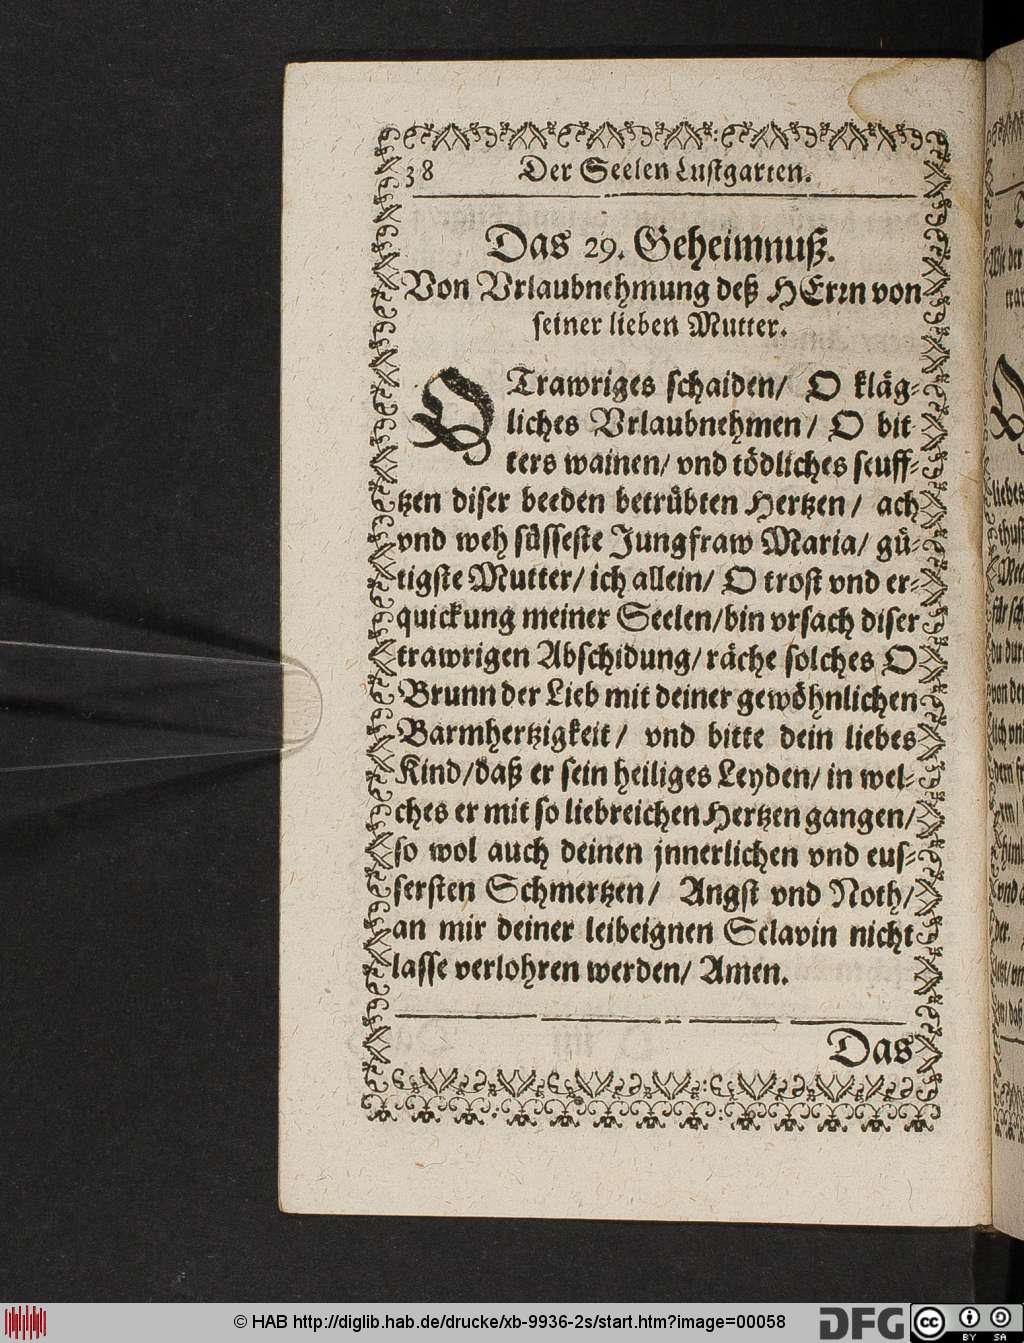 38 Der Seelen Lustgarten.
Das 29. Geheimnuß.
Von Vrlaubnehmung deß HErrn von
seiner lieben Mutter.
O Trawriges schaiden/ O kläg-
liches Vrlaubnehmen/ O bit-
ters wainen/ vnd tödliches seuff-
tzen diser beeden betrübten Hertzen/ ach
vnd weh süsseste Jungfraw Maria/ gü-
tigste Mutter/ ich allein/ O trost vnd er-
quickung meiner Seelen/ bin vrsach diser
trawrigen Abschidung/ räche solches O
Brunn der Lieb mit deiner gewöhnlichen
Barmhertzigkeit/ vnd bitte dein liebes
Kind/ daß er sein heiliges Leyden/ in wel-
ches er mit so liebreichen Hertzen gangen/
so wol auch deinen jnnerlichen vnd eus-
sersten Schmertzen/ Angst vnd Noth/
an mir deiner leibeignen Sclavin nicht
lasse verlohren werden/ Amen.
Das
© HAB http://diglib.hab.de/drucke/xb-9936-2s/start.htm?image=00058
DFG
cc BY SA